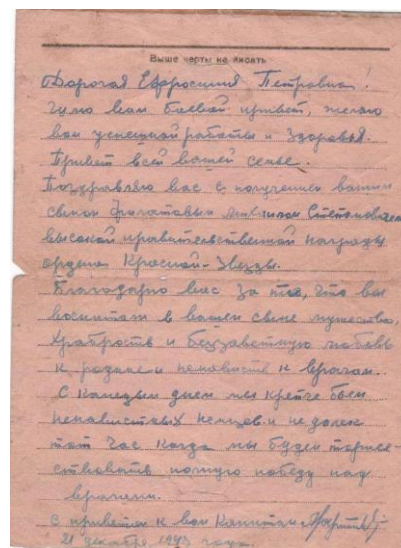 Выше черты не писать
Дорогая Ефросиния Петровна!
Шлю вам боевой привет, желаю
вам успешной работы и здоровья.
Привет всей вашей семье.
Поздравляю вас с получением вашим
сыном Степановичем
высокой правительственной награды
ордена Красной-Звезды.
Благодарю вас за то, что вы
воспитали в вашем сыне мужество,
храбрость и беззаветную любовь
к родине и ненависть к врагам.
С каждым днем мы крепче бьем
ненавистных немцев и не далек
тот час когда мы будем торже-
ствовать полную победу над
врагами.
с приветом к вам Капитан
21 декабря 1943 года.